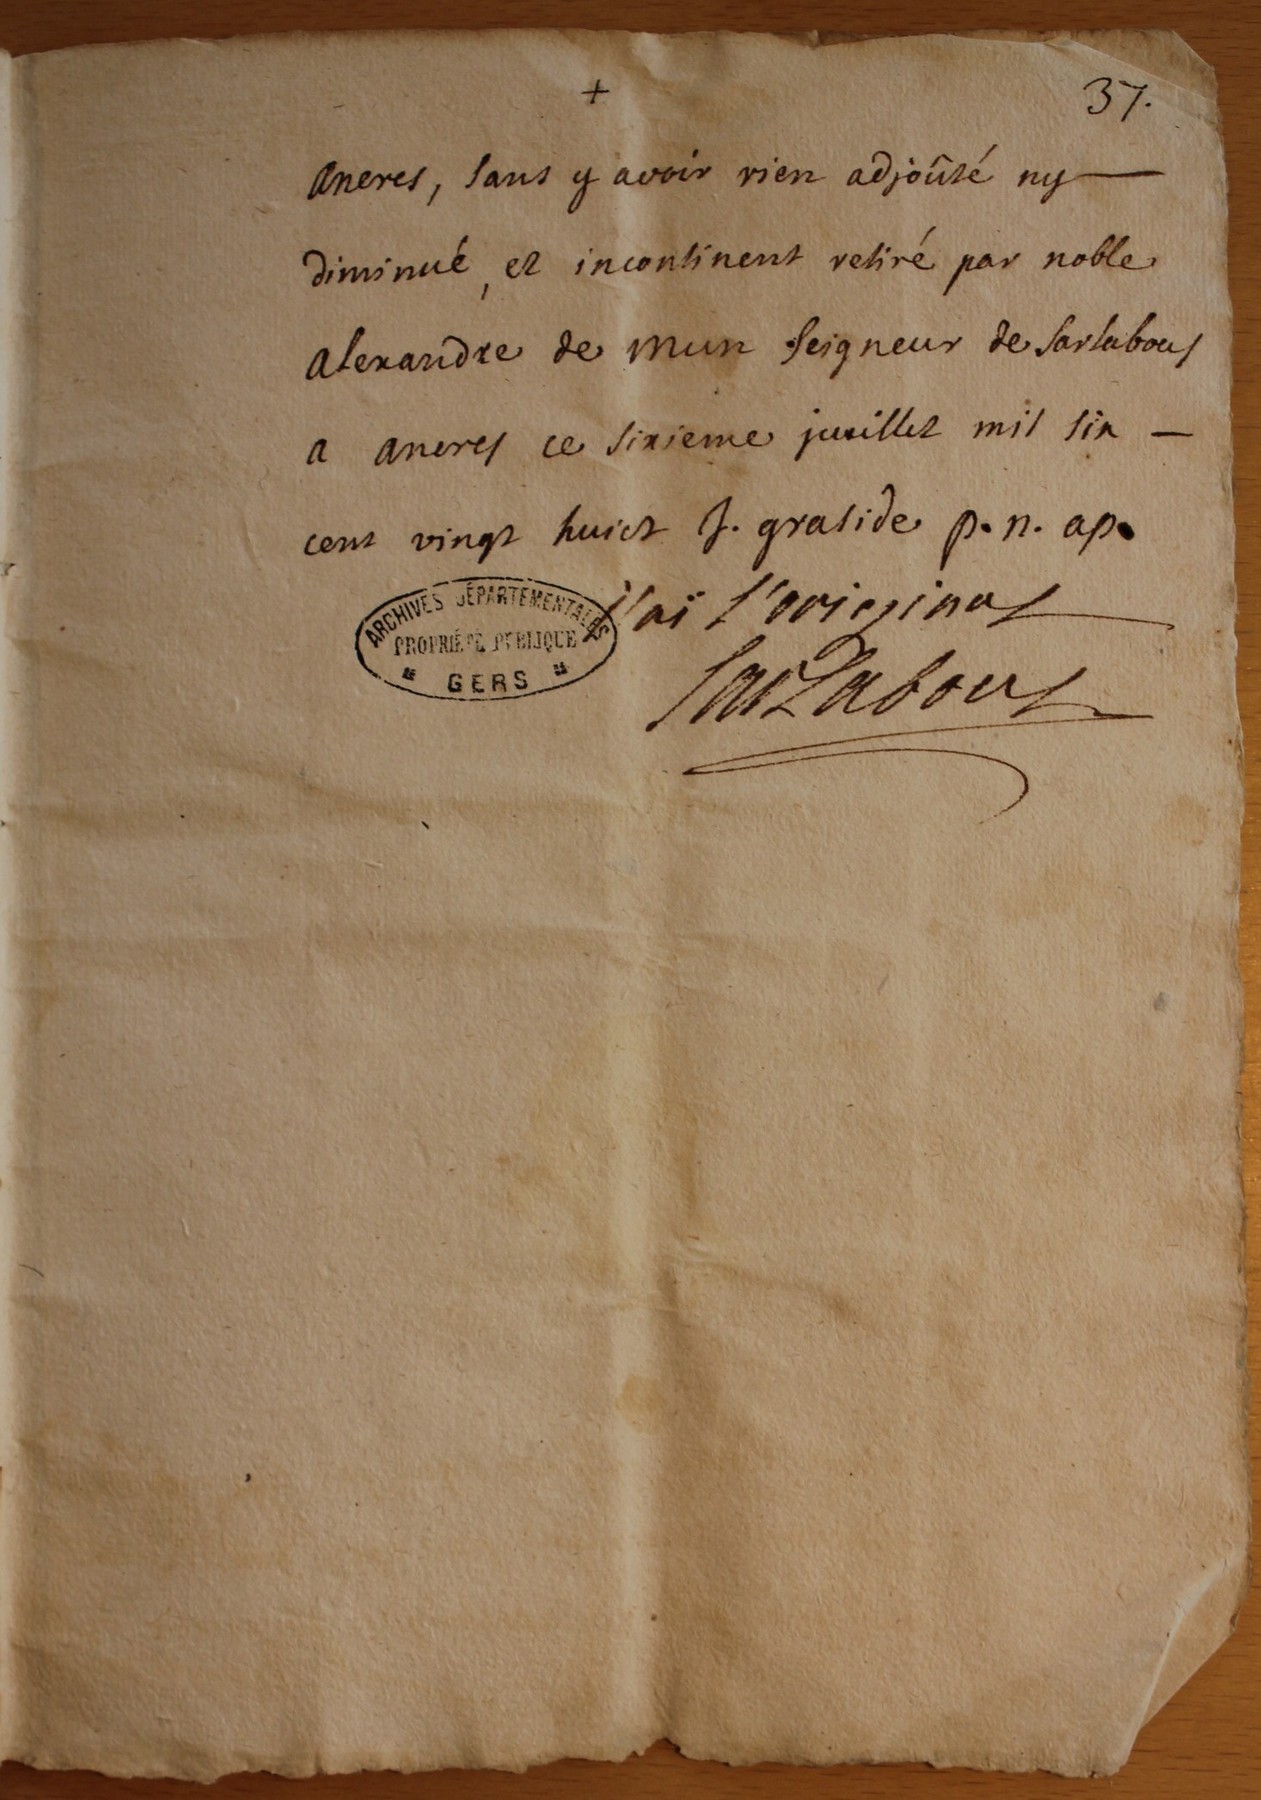 +
37.
aneres, sans y avoir rien adjoûté ny
diminué, et incontinent retiré par noble
alexandre de mun seigneur de sarlabous
a aneres ce sixieme juillet mil six
cent vingt huict J. gratide p. n. ap.
j'ai l'original
Sarlabous
ARCHIVES DÉPARTEMENTALES
PROPRIÉTÉ PUBLIQUE
GERS